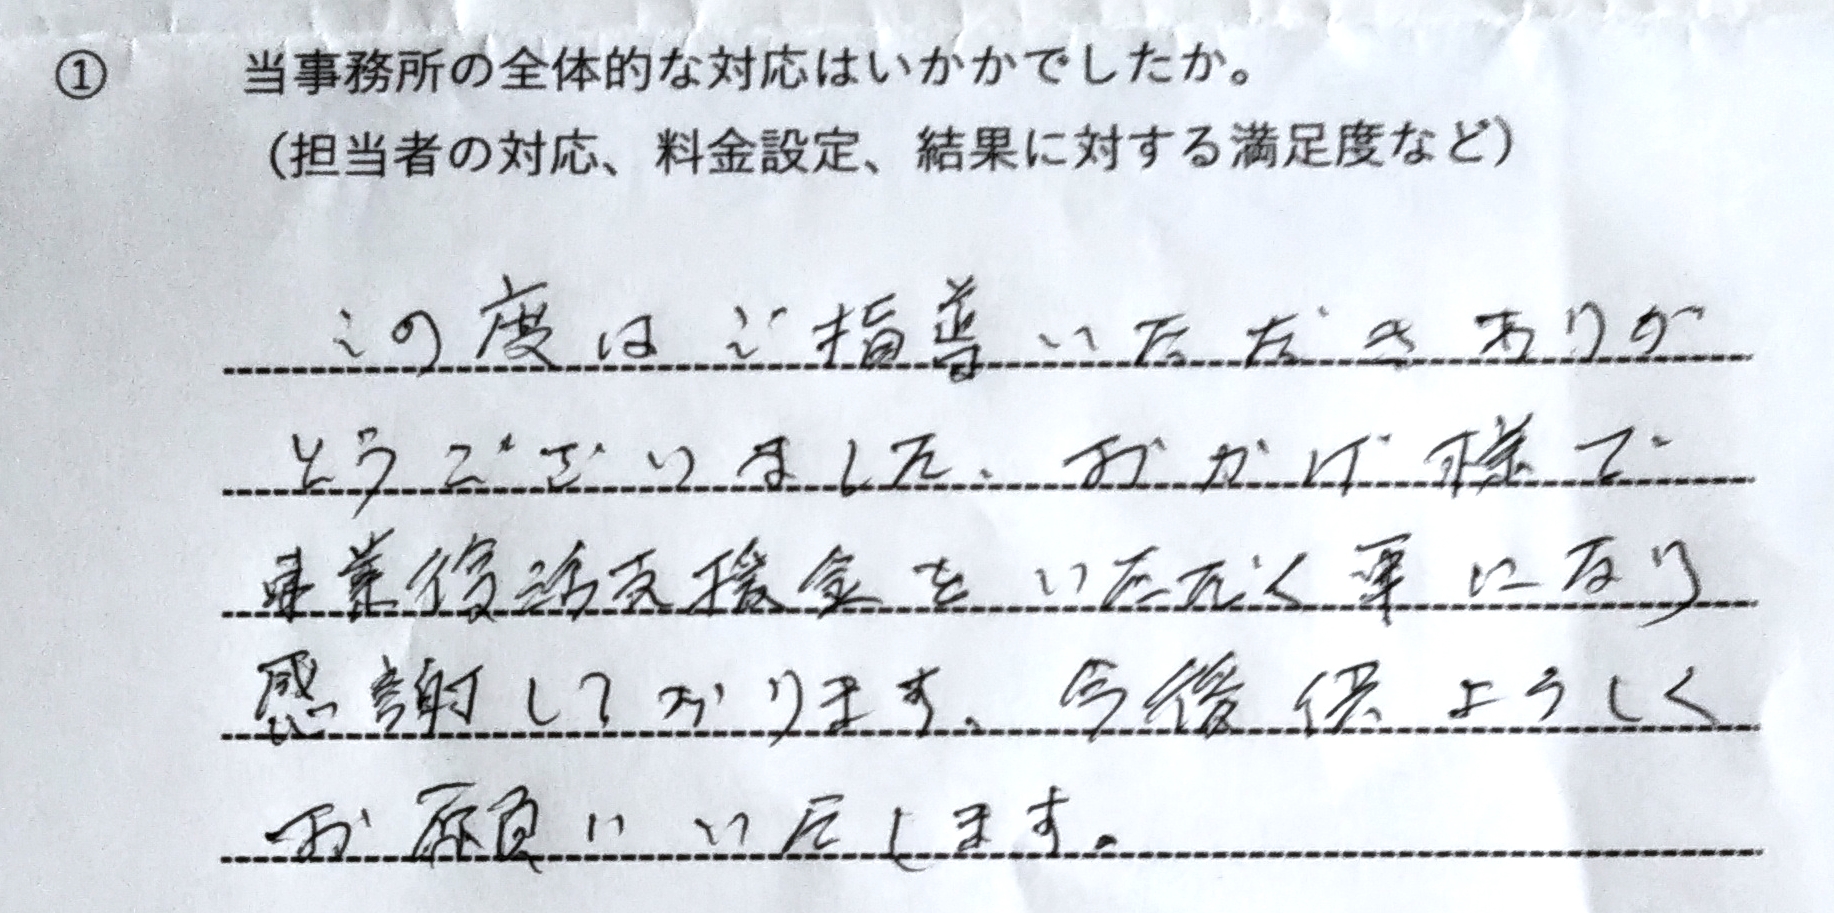 ① 当事務所の全体的な対応はいかかでしたか。
（担当者の対応、料金設定、結果に対する満足度など）
この度はご指導いただきありが
とうございました。おかげ様で
事業復活支援金をいただく事になり
感謝しております。今後供ようしく
お願いいたします。